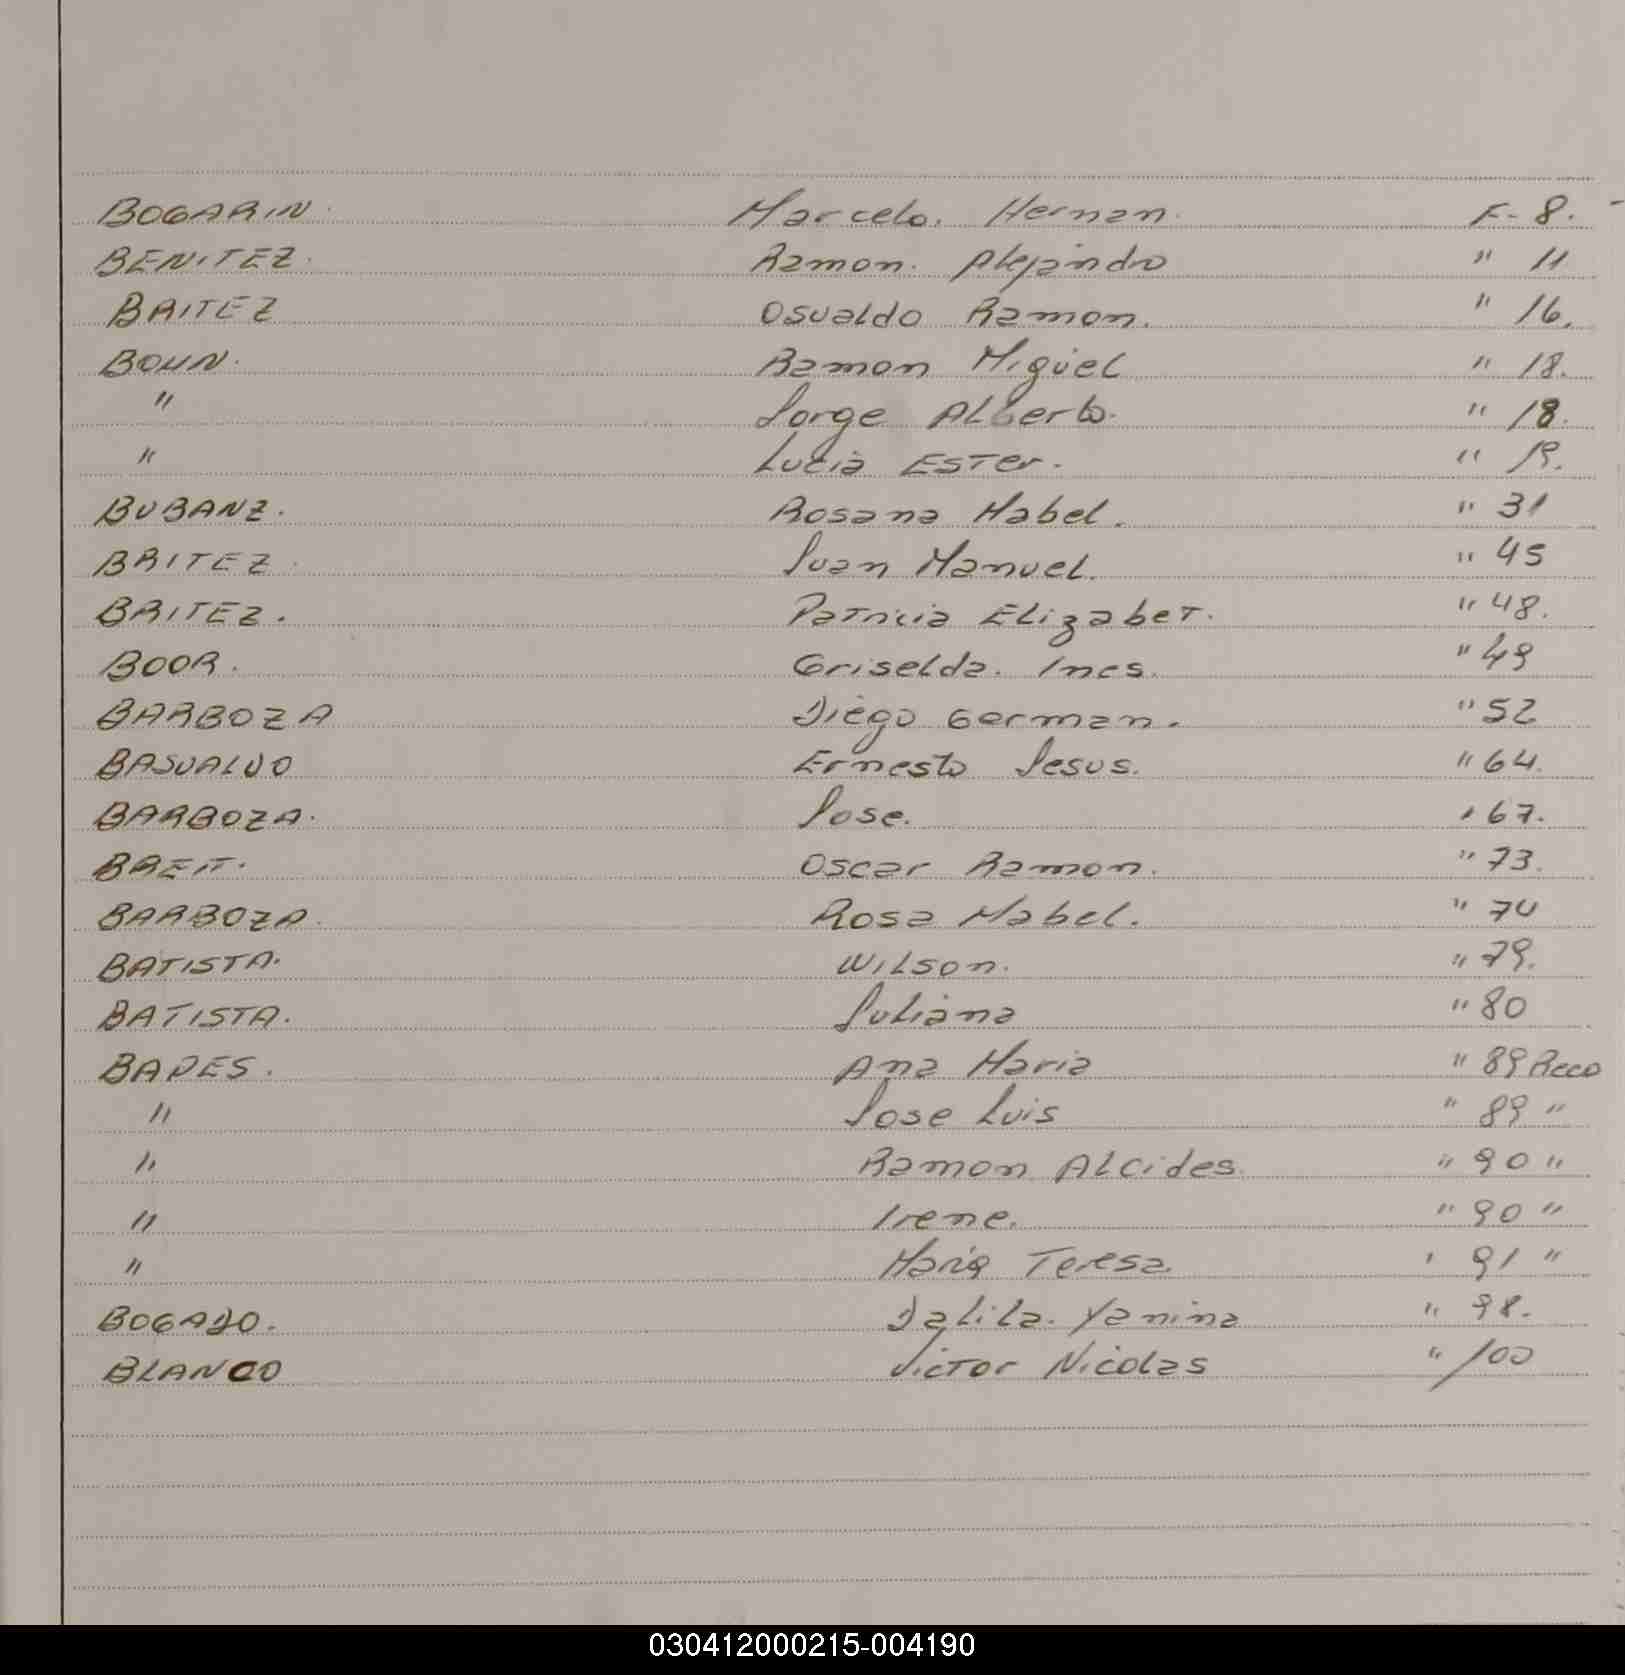 BOGARIN. Marcelo. Hernan. F- 8. -
BENITEZ. Ramon. Alejandro " 11
BRITEZ Osvaldo Ramon. " 16.
BOHN. Ramon Miguel " 18.
" Jorge Alberto. " 18.
" Lucia Ester. " 19.
BUBANZ. Rosana Mabel. " 31
BRITEZ. Juan Manuel. " 45
BRITEZ. Patricia Elizabet. " 48.
BOOR. Griselda. Ines. " 49
BARBOZA Diego German. " 52
BASUALDO Ernesto Jesus. " 64.
BARBOZA. Jose. " 67.
BREIT. Oscar Ramon. " 73.
BARBOZA. Rosa Mabel. " 74
BATISTA. Wilson. " 79.
BATISTA. Juliana " 80
Ana Maria " 89 Reco
" Jose Luis " 89 "
" Ramon Alcides. " 90 "
" Irene. " 90 "
" Maria Teresa. " 91 "
BOGADO. Dalila. Yanina " 98.
BLANCO Victor Nicolas " 100
030412000215-004190